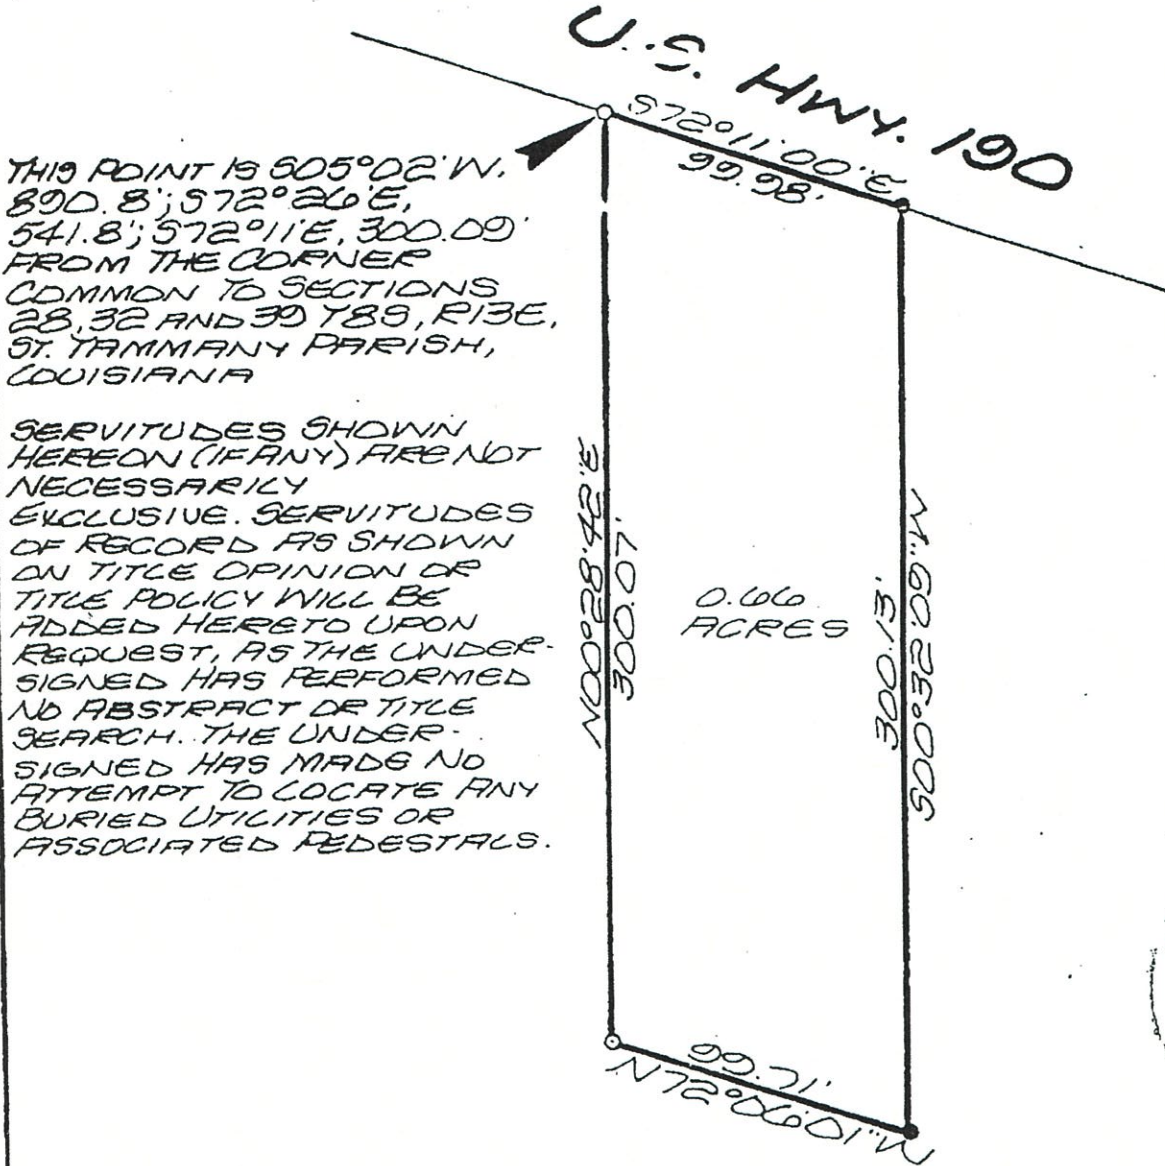 U.S. HWY. 190
S72°11'00"E
99.98'
THIS POINT IS S05°02'W.
890.8'; S72°26'E,
541.8'; S72°11'E, 300.09'
FROM THE CORNER
COMMON TO SECTIONS
28, 32 AND 39 T8S, R13E,
ST. TAMMANY PARISH,
LOUISIANA
SERVITUDES SHOWN
HEREON (IF ANY) ARE NOT
NECESSARILY
EXCLUSIVE. SERVITUDES
OF RECORD AS SHOWN
ON TITLE OPINION OR
TITLE POLICY WILL BE
ADDED HERETO UPON
REQUEST, AS THE UNDER-
SIGNED HAS PERFORMED
NO ABSTRACT OR TITLE
SEARCH. THE UNDER-
SIGNED HAS MADE NO
ATTEMPT TO LOCATE ANY
BURIED UTILITIES OR
ASSOCIATED PEDESTALS.
N00°28'42"E
300.07'
0.66
ACRES
300.13'
S00°32'09"W
99.71'
N72°06'01"W